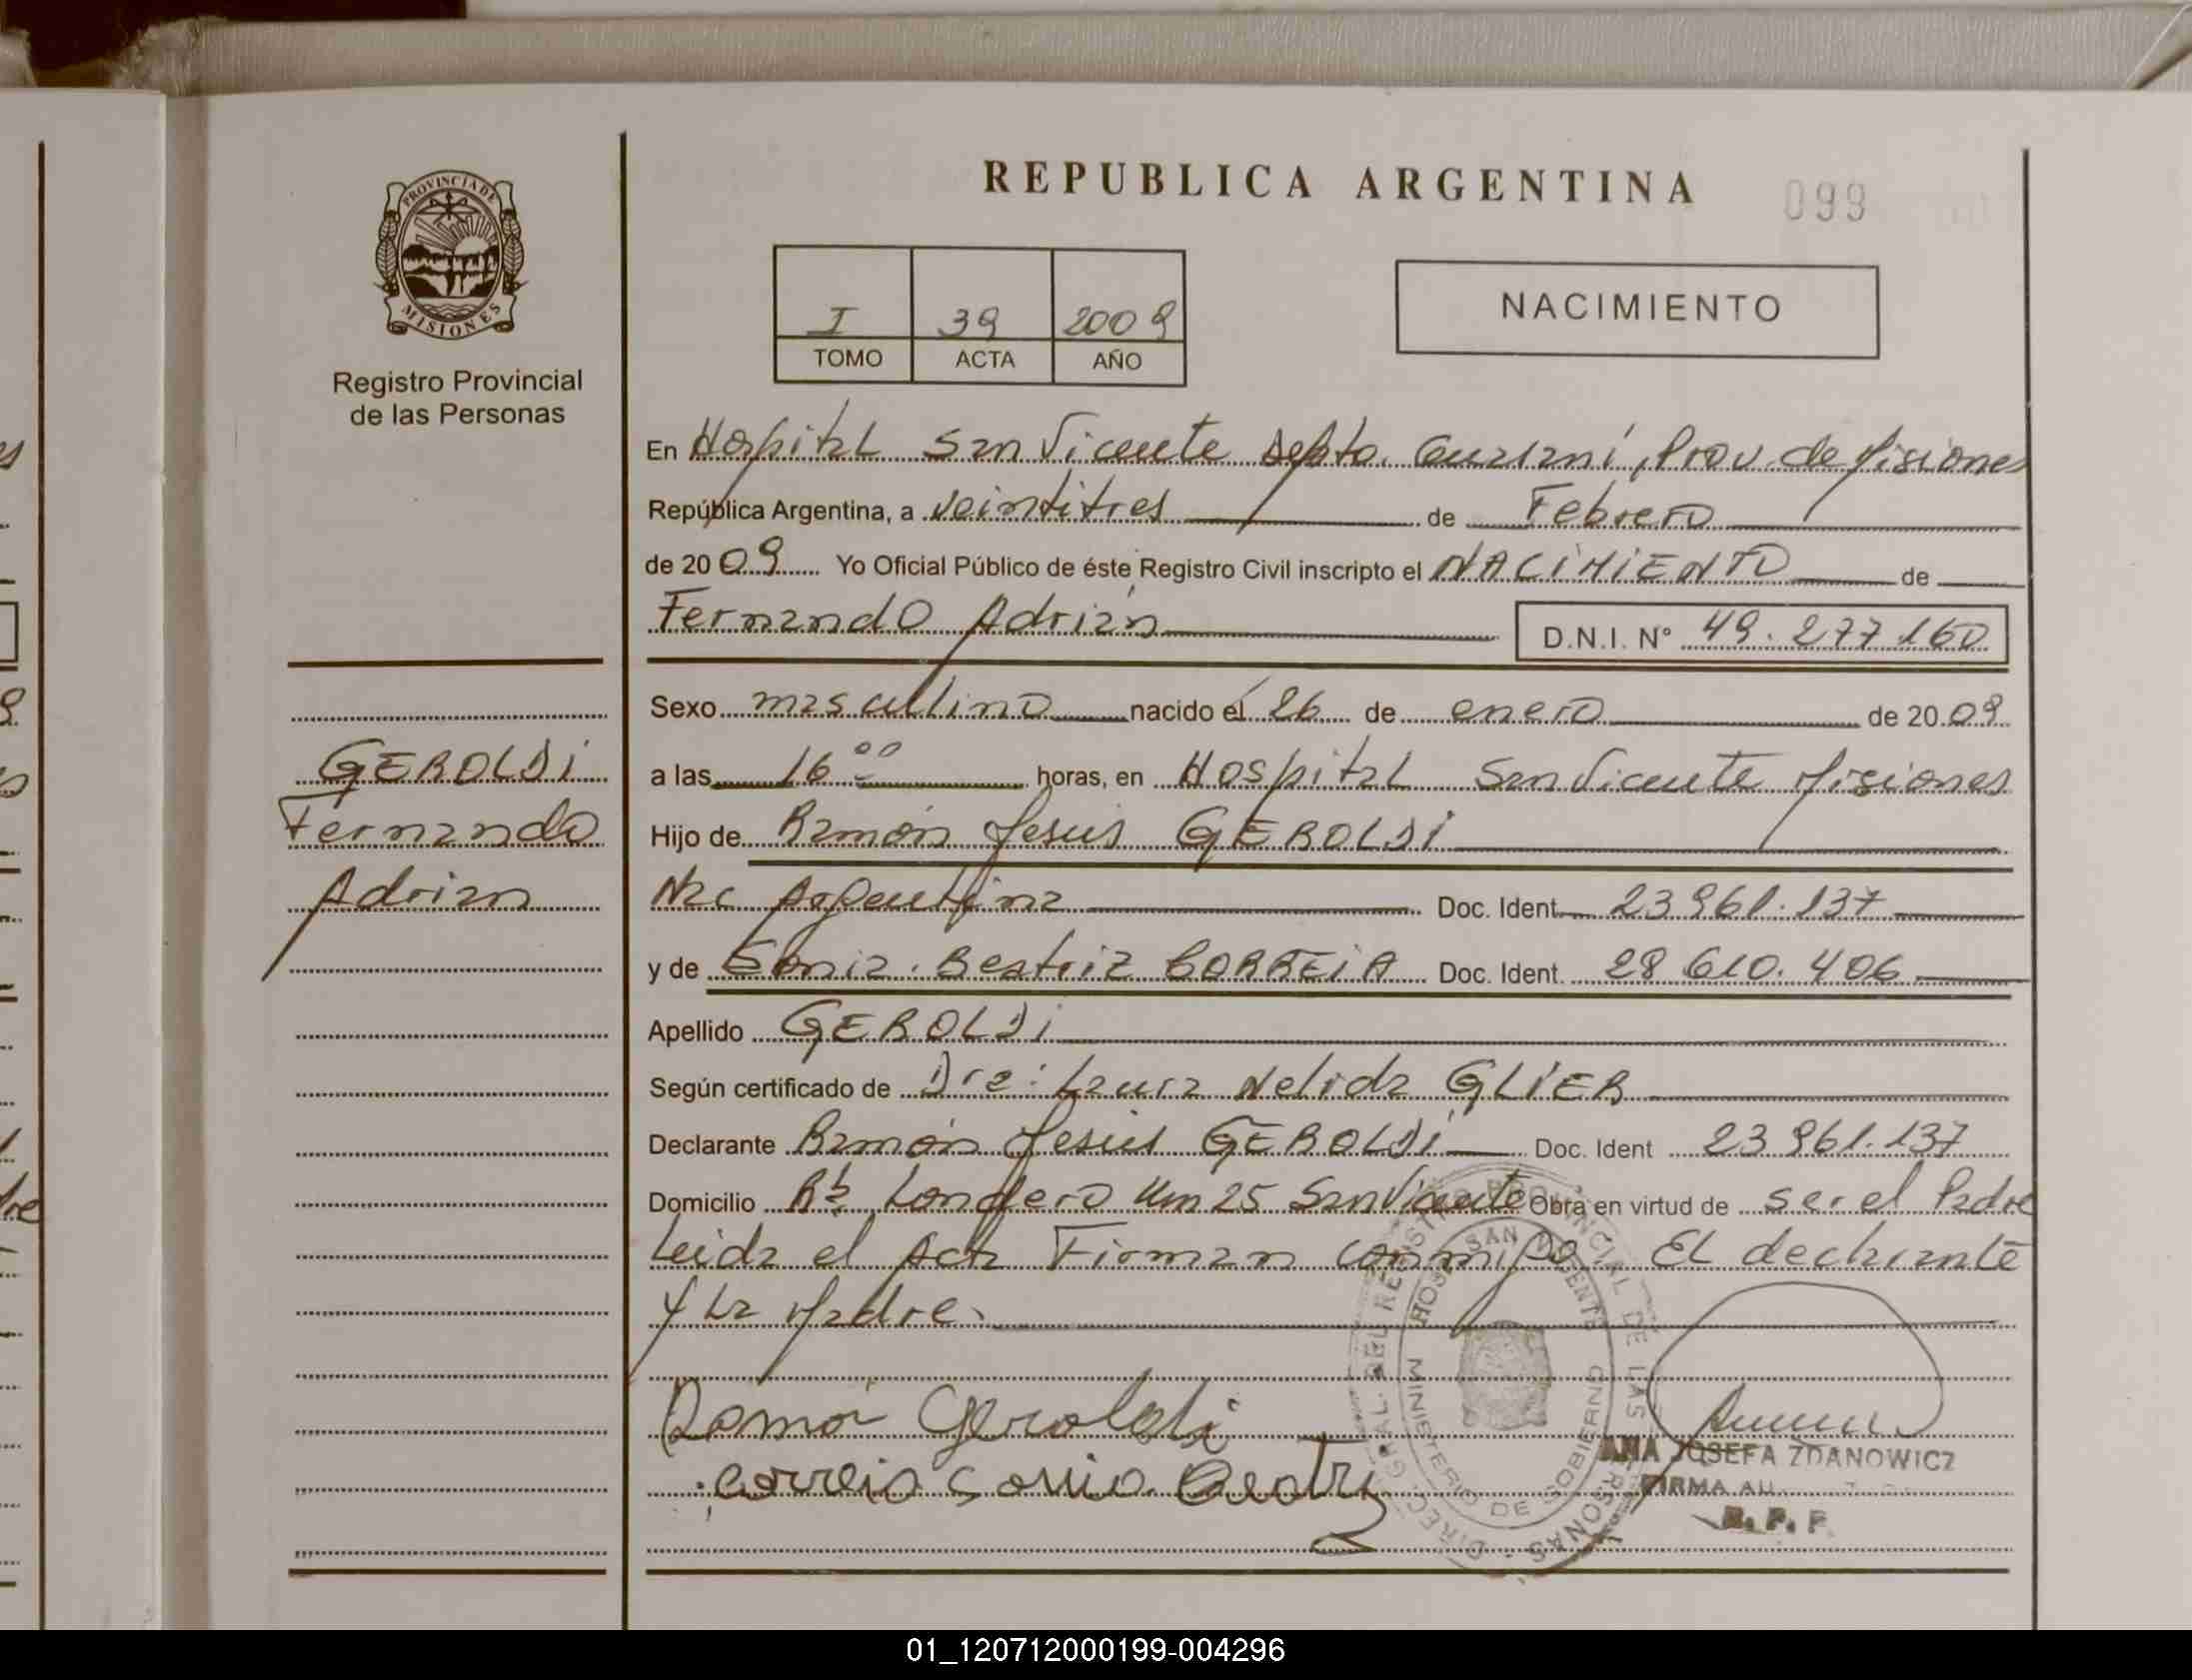 REPUBLICA ARGENTINA
099
PROVINCIA DE
MISIONES
Registro Provincial
de las Personas
I 39 2009
TOMO ACTA AÑO
NACIMIENTO
En Hospital San Vicente Depto. Guaraní, Prov. de Misiones
República Argentina, a veintitres de Febrero
de 2009 Yo Oficial Público de éste Registro Civil inscripto el NACIMIENTO de
Fernando Adrián D.N.I. N° 49.277.160
Sexo masculino nacido el 26 de enero de 2009
a las 16 00 horas, en Hospital San Vicente Misiones
GEROLDI
Fernando
Adrian
Hijo de Ramón Jesús GEROLDI
Nac Argentina Doc. Ident 23 961.137
y de Sonia Beatriz CORREIA Doc. Ident. 28 610.406
Apellido GEROLDI
Según certificado de Dra: Laura Nelida GLIER
Declarante Ramón Jesús GEROLDI Doc. Ident 23 961.137
Domicilio Londero Km 25 San Vicente Obra en virtud de ser el Padre
Leida el Acta Firman conmigo El declarante
y La Madre.
Ramón Geroldi
Correia Sonia Beatriz
HOSP. SAN VICENTE
MINISTERIO DE GOBIERNO
DIREC. GRAL. DEL REGISTRO PROVINCIAL DE LAS PERSONAS
ANA JOSEFA ZDANOWICZ
FIRMA
R. P. P.
01_120712000199-004296